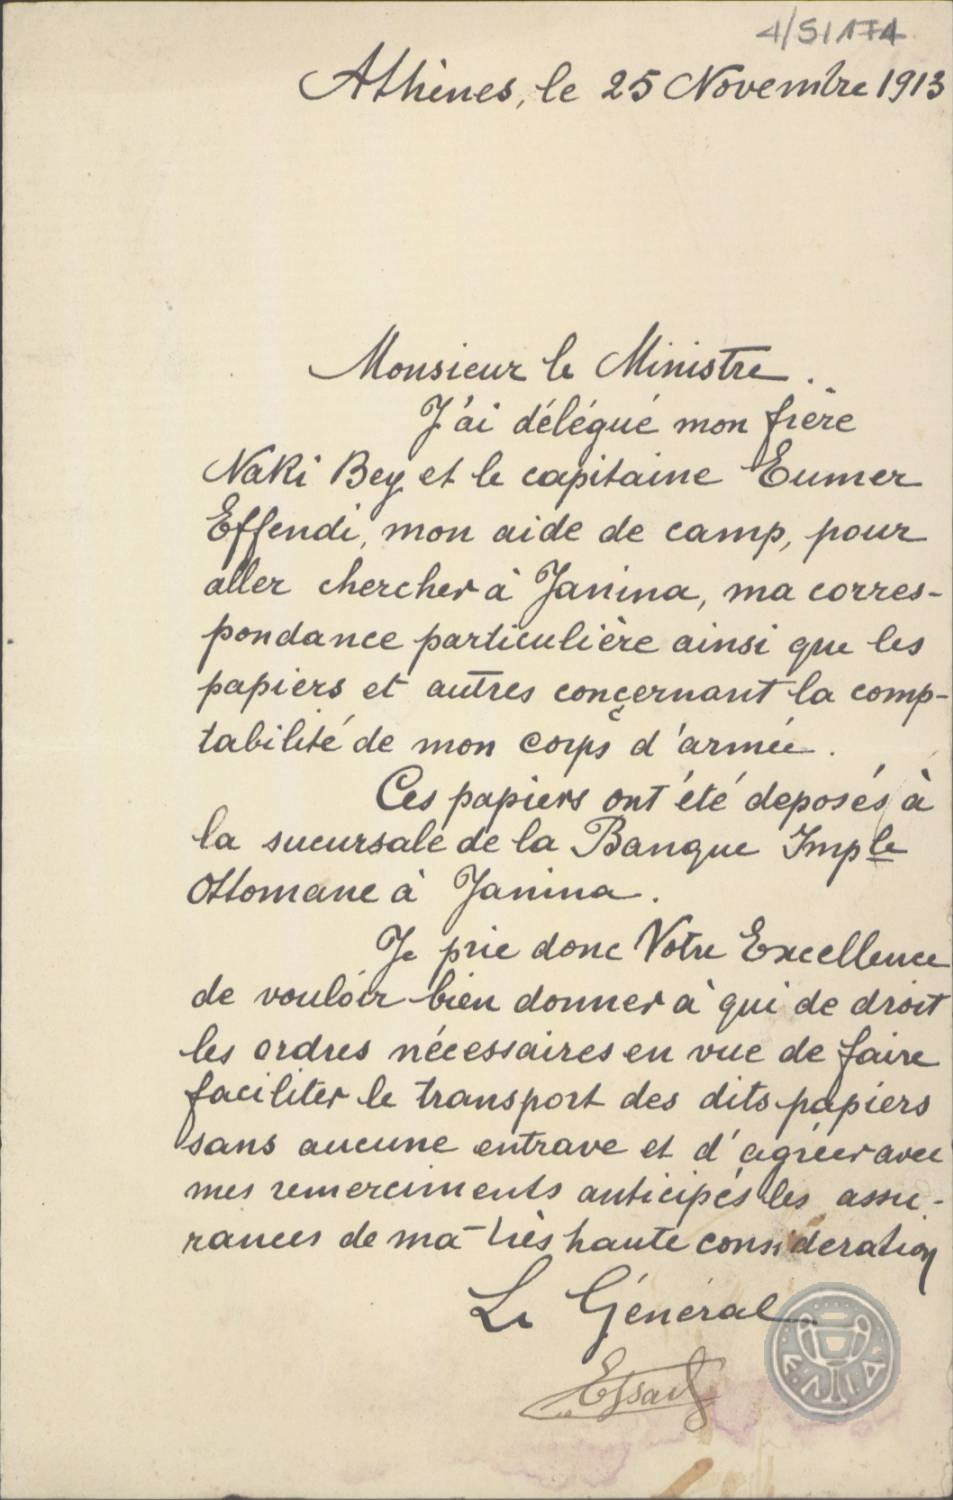 4/51174
Athènes, le 25 Novembre 1913
Monsieur le Ministre.
J'ai délégué mon frère
Naki Bey et le capitaine Eumer
Effendi, mon aide de camp, pour
aller chercher à Janina, ma corres-
pondance particulière ainsi que les
papiers et autres concernant la comp-
tabilité de mon corps d'armée.
Ces papiers ont été deposés à
la sucursale de la Banque Imple
Ottomane à Janina.
Je prie donc Votre Excellence
de vouloir bien donner à qui de droit
les ordres nécessaires en vue de faire
faciliter le transport des dits papiers
sans aucune entrave et d'agréer avec
mes remerciments anticipés les assu-
rances de ma très haute consideration
Le Général
Essad